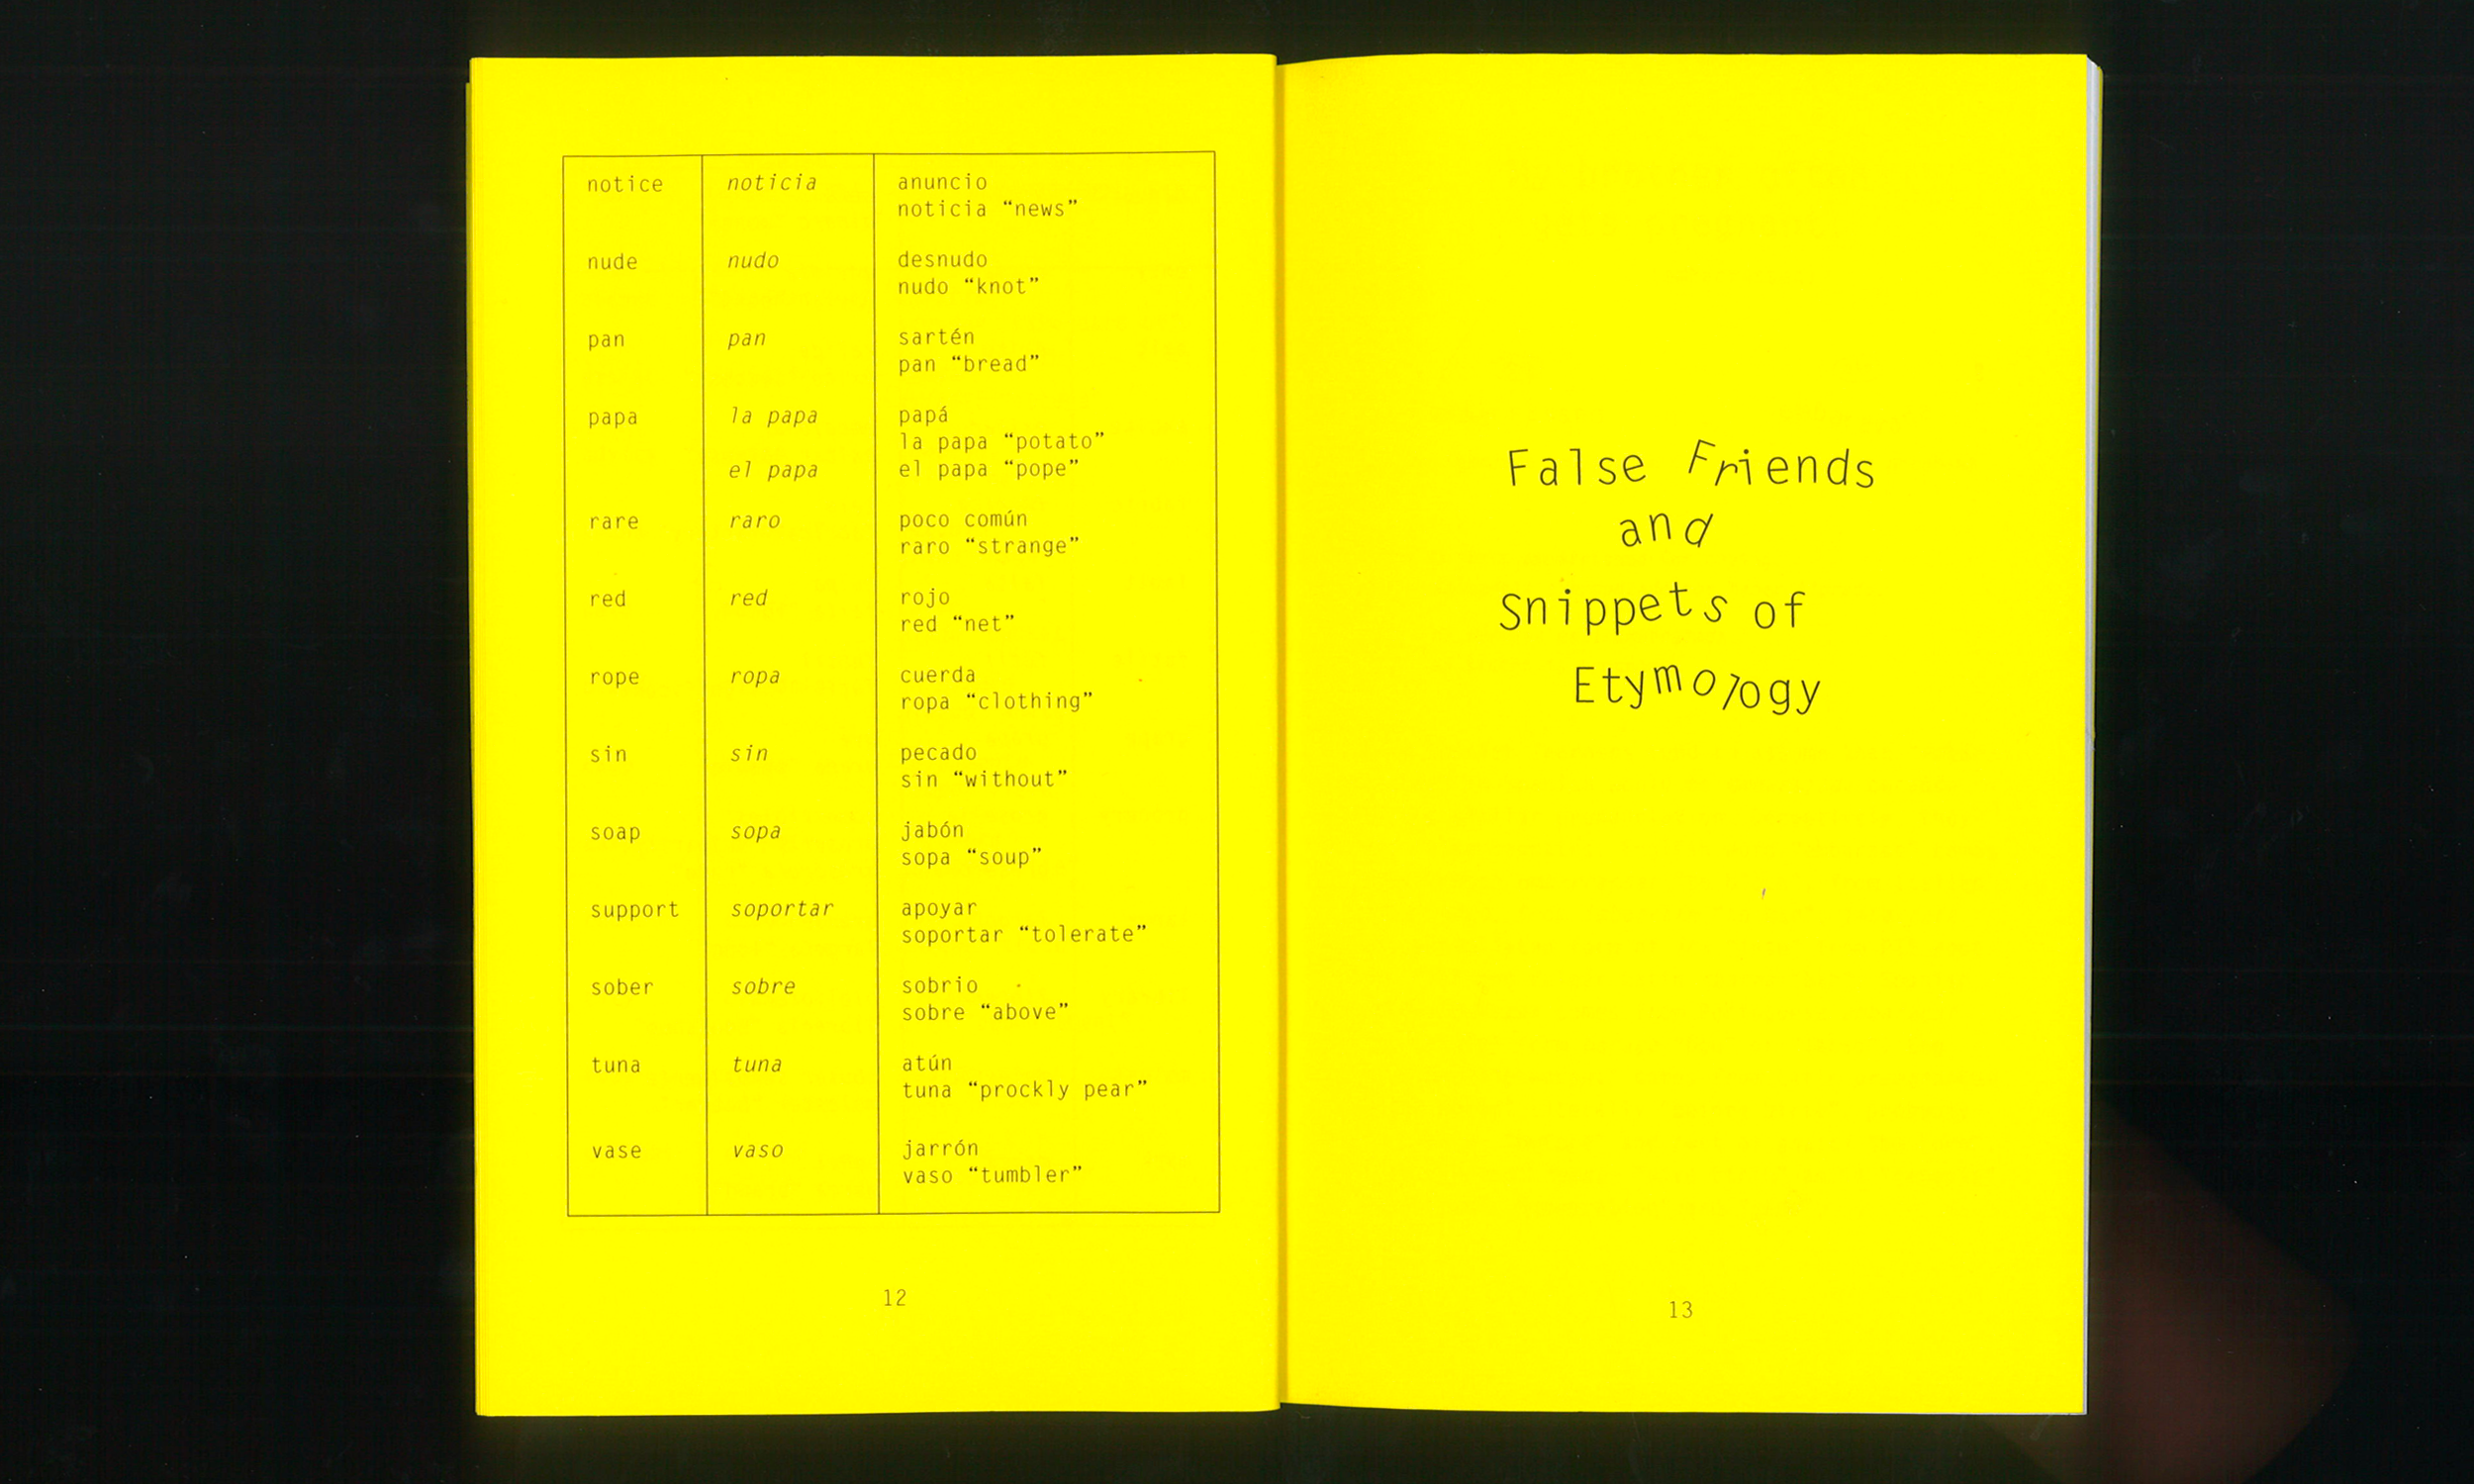 notice noticia anuncio
noticia “news”
nude nudo desnudo
nudo “knot”
pan pan sartén
pan “bread”
papa la papa papá
la papa “potato”
el papa el papa “pope”
rare raro poco común
raro “strange”
red red rojo
red “net”
rope ropa cuerda
ropa “clothing”
sin sin pecado
sin “without”
soap sopa jabón
sopa “soup”
support soportar apoyar
soportar “tolerate”
sober sobre sobrio
sobre “above”
tuna tuna atún
tuna “prockly pear”
vase vaso jarrón
vaso “tumbler”
12
False Friends
and
Snippets of
Etymology
13